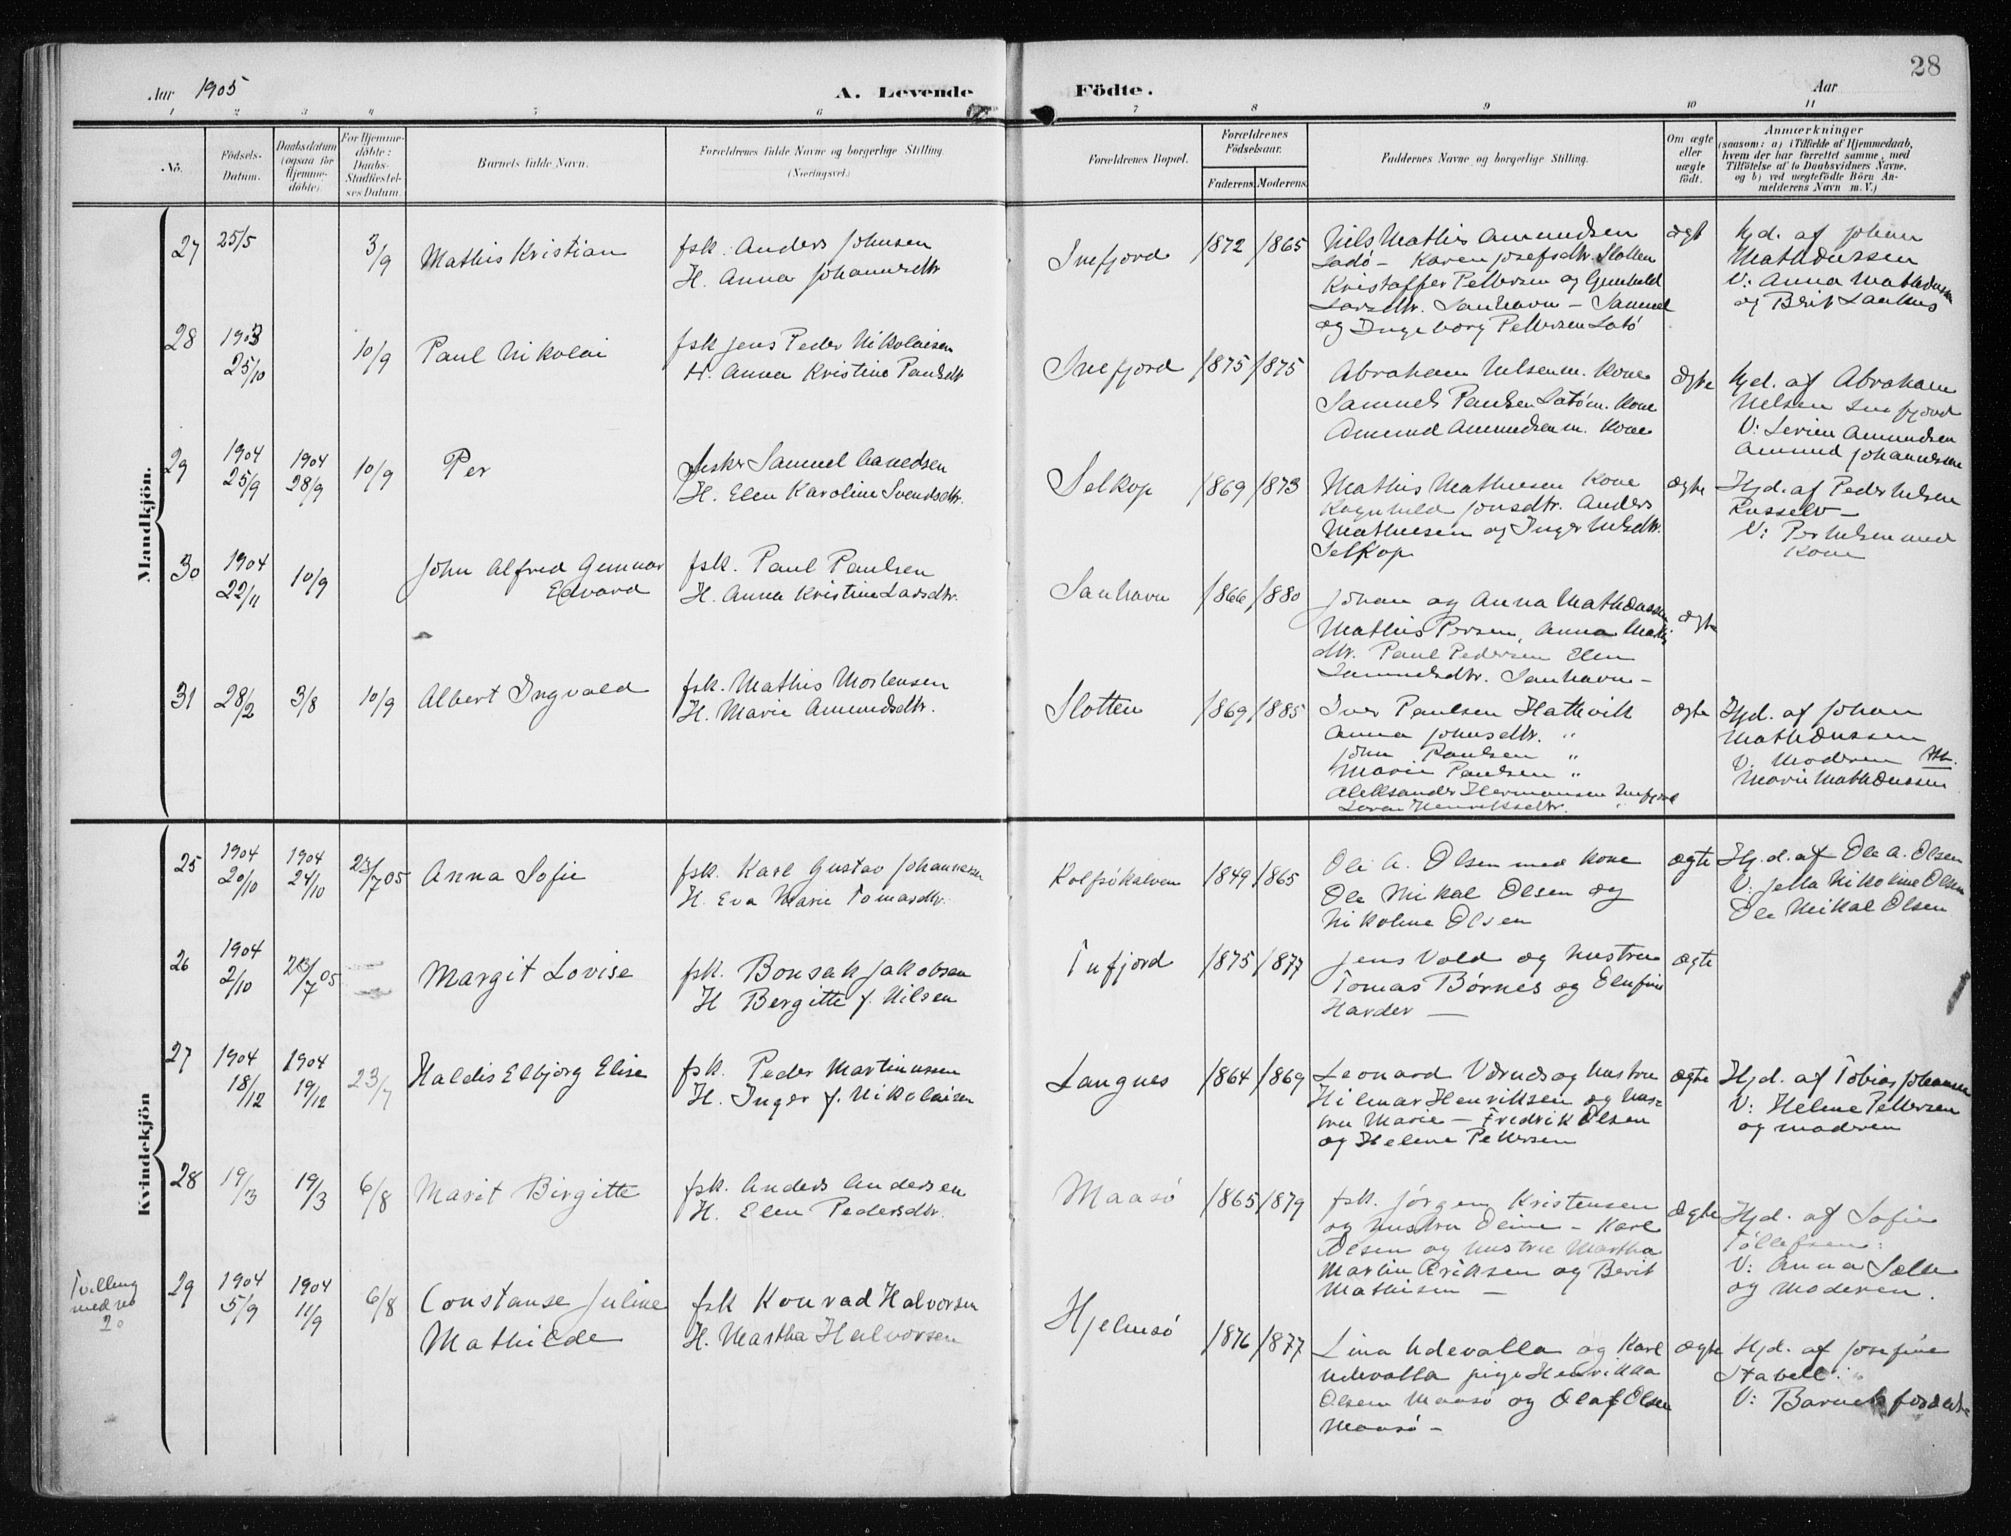 28
Aar 1905
A. Levende
Födte.
Aar
1 2 3 4 5 6 7 8 9 10 11
No.
Födsels-
Datum.
Daabsdatum
(ogsaa for
Hjemme-
döbte).
For Hjemme-
döbte:
Daabs-
Stadfæstel-
ses Datum.
Barnets fulde Navn.
Forældrenes fulde Navne og borgerlige Stilling.
(Næringsvei.)
Forældrenes Bopæl.
Forældrenes
Fødselsaar.
Faderens.
Moderens.
Faddernes Navne og borgerlige Stilling.
Om ægte
eller
uægte
födt.
Anmærkninger
(saasom: a) i Tilfælde af Hjemmedaab,
hvem der har forrettet samme, med
Tilföielse af to Daabsvidners Navne,
og b) ved uægtefödte Börn An-
melderens Navn m. V.)
Mandkjön.
27
25/5
3/9
Mathis Kristian
fsk. Anders Johnsen
H. Anna Johannesdtr
Snefjord
1872
1865
Nils Mathis Amundsen
Karen Josefsdtr. Slotten
Kristoffer Pettersen og Gunhild
Larsdtr. Sanhavn — Samuel
og Ingeborg Pettersen
ægt
Hjd. af Johan
Mathæussen
V: Anna Mathæussen
og Berit
28
1903
25/10
10/9
Paul Nikolai
fsk Jens Peder Nikolaisen
H. Anna Kristine Paulsdtr
Snefjord
1875
1875
Abraham Nilsen m. Kone
Samuel Paulsen m. Kone
Amund Amundsen m. Kone
ægte
Hjd. af Abraham
Nilsen Snefjord
V: Amundsen
Amund Johannessen
29
1904
25/9
1904
28/9
10/9
Per
fisker Samuel
H. Elen Karoline Svendsdtr.
Selkop
1869
1873
Mathis Mathisen Kone
Ragnhild Jonsdtr. Anders
Mathisen og Inger Nilsdtr.
Selkop
ægte
Hjd. af Peder Nilsen
Russelv —
V: Per Nilsen med
Kone
30
1904
22/11
10/9
John Alfred Gunnar
Edvard
fsk. Paul Paulsen
H. Anna Kristine Larsdtr.
Sanhavn
1866
1880
Johan og Anna Mathæussen
Mathis Persen, Anna Mathis
dtr. Paul Pedersen Elen
Samuelsdtr. Sanhavn —
ægte
31
28/2
3/8
10/9
Albert Ingvald
fsk. Mathis Mortensen
H. Marie Amundsdtr.
Slotten
1869
1885
Iver Paulsen Hattevik
Anna Johnsdtr. "
John Paulsen "
Marie Paulsen "
Aleksander Hermansen Snefjord
Henriksdtr. "
ægte
Hjd. af Johan
Mathæussen
V. Moderen
Marie Mathæussen
Kvindekjön
25
1904
20/10
1904
24/10
23/7 05
Anna Sofie
fsk. Karl Gustav Johannesen
H. Eva Marie Tomasdtr.
Rolfsökalven
1849
1865
Ole A. Olsen med Kone
Ole Mikal Olsen og
Nikoline Olsen
ægte
Hj.d. af Ole A. Olsen
V. Jella Nikoline Olsen
Ole Mikal Olsen
26
1904
2/10
23/7 05
Margit Lovise
fsk. Bonsak Jakobsen
H Bergitte f. Nilsen
Tufjord
1875
1877
Jens Vold og hustru
Tomas Børnes og Elufine
Harder —
ægte
27
1904
18/12
1904
19/12
23/7
Haldis Elbjørg Elise
fsk. Peder Martinussen
H. Inger f. Nikolaisen
Langnes
1864
1869
Leonard Værnes og hustru
Hilmar Henriksen og hus-
tru Marie — Fredrik Olsen
og Helene Pettersen
ægte
Hjd. af Tobias Johansen
V: Helene Pettersen
og moderen
28
19/3
19/3
6/8
Marit Birgitte
fsk. Anders Andersen
H. Elen Pedersdtr.
Maasö
1865
1879
fsk. Jørgen Kristensen
og hustru Oline — Karl
Olsen og hustru Martha
Martin Eriksen og Berit
Mathisen —
ægte
Hjd. af Sofie
Tollefsen:
V: Anna
og Moderen.
Tvilling
med no
20
29
1904
5/9
1904
11/9
6/8
Constanse Juline
Mathilde
fsk Konrad Halvorsen
H. Martha Halvorsen
Hjelmsö
1876
1877
Lina Udevalla og Karl
Udevalla pige Henrikka
Olsen Maasö og Olaf Olsen
Maasö —
ægte
Hjd. af Josefine
Stabell:
V: Barnets forældre